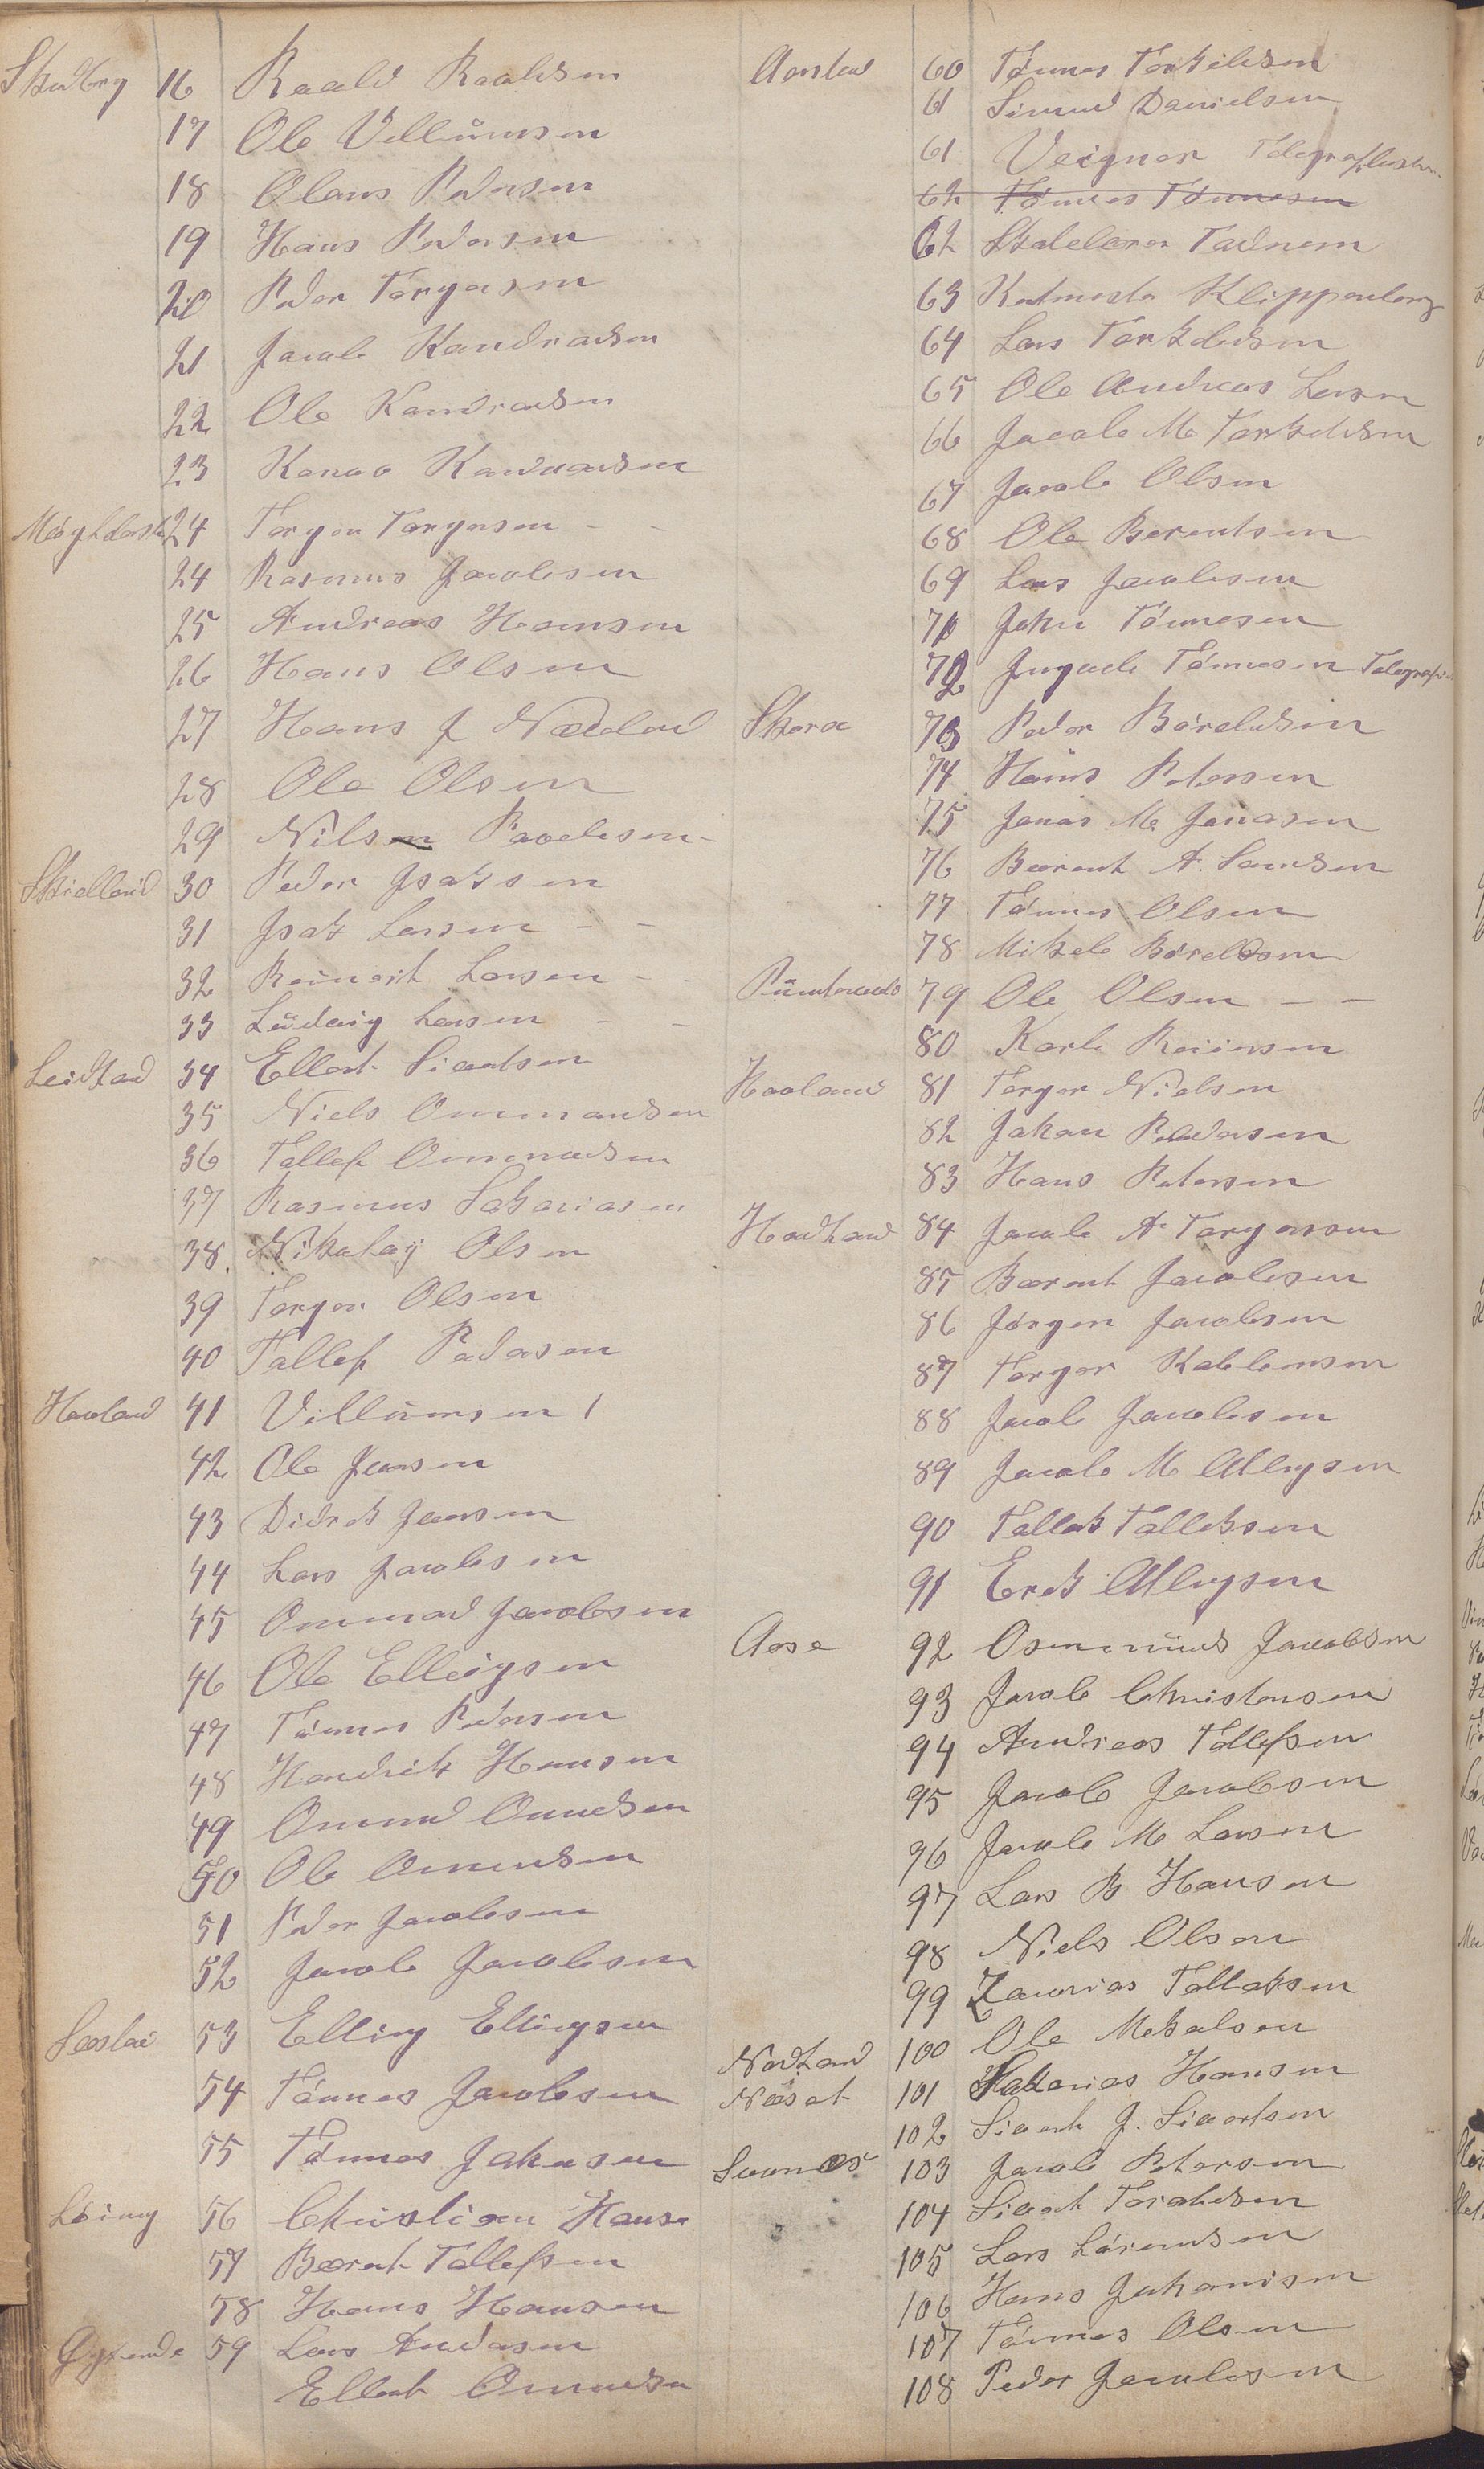 Skadberg 16 Raald Raaldsen
17 Ole Villumsen
18 Olaus Pedersen
19 Hans Pedersen
20 Peder Torgersen
21 Jacob Kandradsen
22 Ole Kandradsen
23 Kanrad Kandradsen
24 Torger Torgersen - -
24 Rasmus Jacobsen
25 Andreas Hansen
26 Hans Olsen
27 Hans J
28 Ole Olsen
29 Nilsen
Skielland 30 Peder Isaksen
31 Isak Larsen - -
32 Reinert Larsen - -
33 Ludvig Larsen - -
34 Ellert Sivertsen
35 Niels Ommundsen
36 Tollef Ommundsen
37 Rasmus Sakariasen
38 Nikolaij Olsen
39 Torger Olsen
40 Tallef Pedersen
Haaland 41 Villumsen 1
42 Ole Jansen
43 Didrek Jansen
44 Lars Jacobsen
45 Ommund Jacobsen
46 Ole Ellingsen
47 Tónnes Pedersen
48 Hendrik Hansen
49 Omund Omundsen
50 Ole Omundsen
51 Peder Jacobsen
52 Jacob Jacobsen
53 Elling Ellingsen
54 Tónnes Jacobsen
55 Tónnes Jahnsen
Lóining 56 Christian Hansen
57 Bærent Tollefsen
58 Hans Hansen
59 Lars Andersen
Ellert Omundsen
Aarstad 60 Tónnes Torkildsen
61 Simund Danielsen
61 Veigner
62 Tónnes Tónnesen
62 Skolelærer Tadnem
63 Klippenberg
64 Lars Torkeldsen
65 Ole Andreas Larsen
66 Jacob M Torkeldsen
67 Jacob Olsen
68 Ole Berentsen
69 Lars Jacobsen
71 John Tónnesen
72 Tónnesen
Skara 73 Peder Bóreldsen
74 Hans Petersen
75 Jonas M Jonasen
76 Bærent A. Samdsen
77 Tónnes Olsen
78 Mikele Bóreldsen
79 Ole Olsen - -
80 Karl Reiersen
Haaland 81 Torger Nielsen
82 Johan Pedersen
83 Hans Petersen
84 Jacob A Torgersen
85 Bærent Jacobsen
86 Jórgen Jacobsen
87 Torger
88 Jacob Jacobsen
89 Jacob M Ellingsen
90 Tallak Tallaksen
91 Erek Ellingsen
Aase 92 Osmund Jacobsen
93 Jacob Christensen
94 Andreas Tollefsen
95 Jacob Jacobsen
96 Jacob M Larsen
97 Lars B Hansen
98 Niels Olsen
99 Zacarias Tallaksen
Nodland 100 Ole Mekalsen
Næset 101 Sakarias Hansen
102 Sivert J. Sivertsen
Svaanes 103 Jacob Petersen
104 Sivert Toraldsen
105 Lars Lórendsen
106 Hans Johanisen
107 Tónnes Olsen
108 Peder Jacobsen